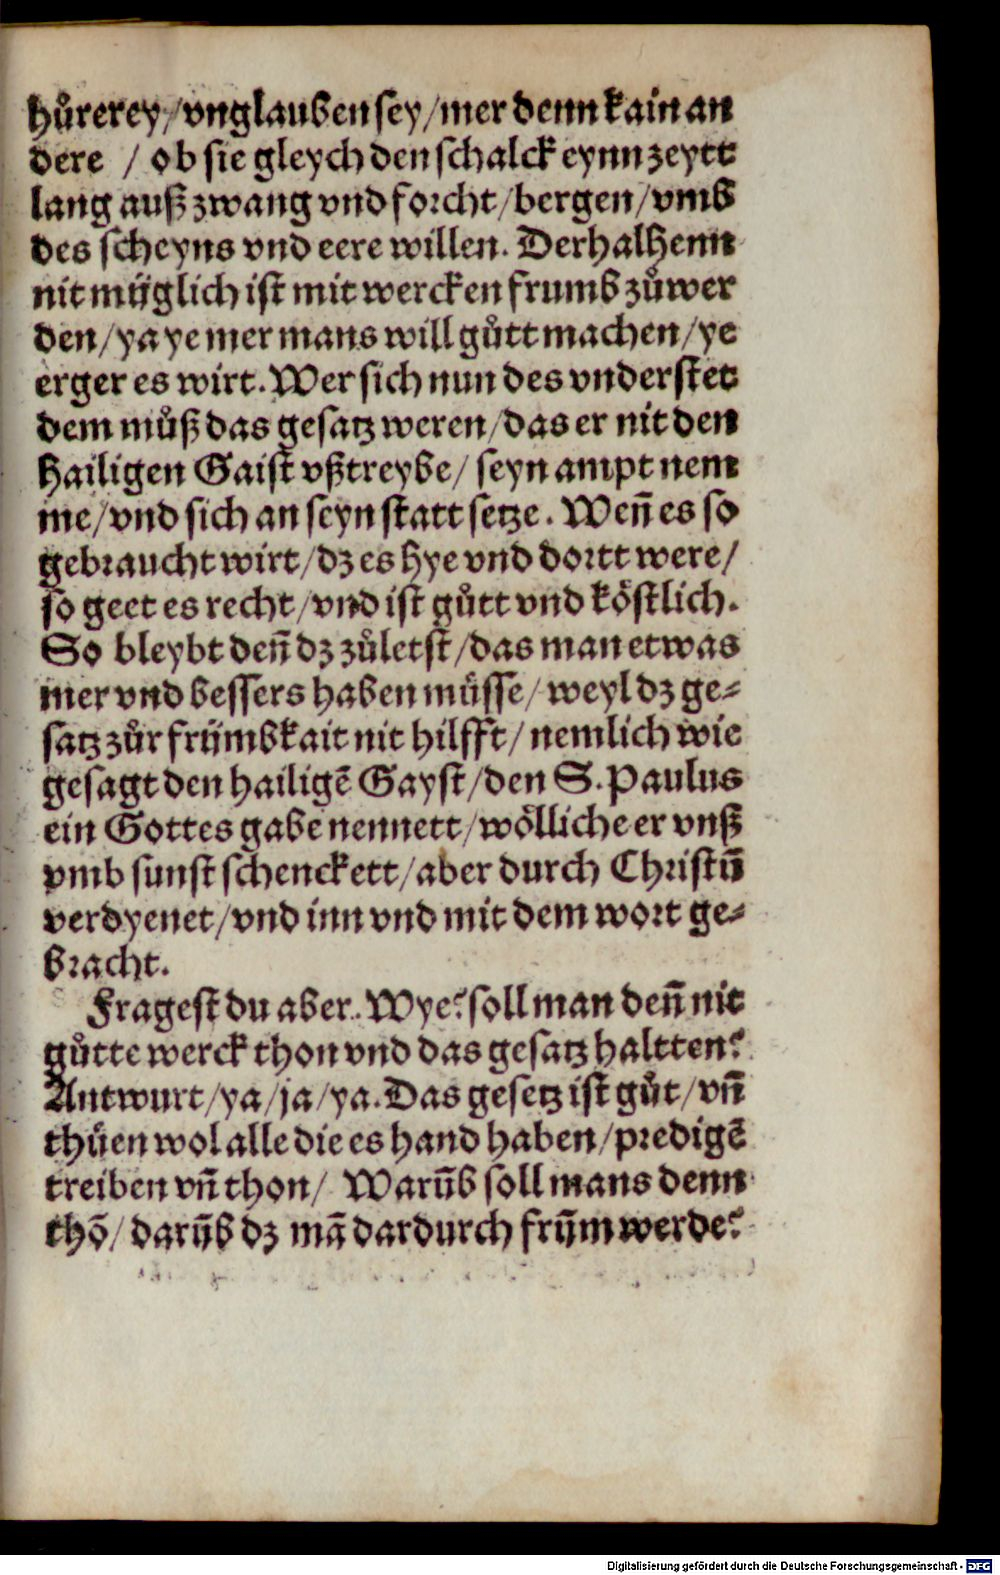 hůrerey/vnglauben sey/mer denn kain an
dere / ob sie gleych den schalck eynn zeytt
lang auß zwang vnd forcht/bergen/vmb
des scheyns vnd eere willen. Derhalbenn
nit müglich ist mit wercken frumb zůwer
den/ya ye mer mans will gůtt machen/ye
erger es wirt. Wer sich nun des vnderstet
dem můß das gesatz weren/das er nit den
hailigen Gaist vßtreybe/ seyn ampt nem
me/vnd sich an seyn statt setze. Weñ es so
gebraucht wirt/dz es hye vnd dortt were/
so geet es recht/vnd ist gůtt vnd köstlich.
So bleybt deñ dz zůletst/das man etwas
mer vnd bessers haben müsse/weyl dz ge⸗
satz zůr frümbkait nit hilfft/nemlich wie
gesagt den hailigẽ Gayst/den S. Paulus
ein Gottes gabe nennett/wölliche er vnß
vmb sunst schenckett/aber durch Christũ
verdyenet/vnd inn vnd mit dem wort ge⸗
bracht.
Fragest du aber. Wye? soll man deñ nit
gůtte werck thon vnd das gesatz haltten?
Antwurt/ya/ja/ya. Das gesetz ist gůt/vñ
thüen wol alle die es hand haben/predigẽ
treiben vñ thon/ Warũb soll mans denn
thõ/darũb dz mã dardurch frũm werde?
Digitalisierung gefördert durch die Deutsche Forschungsgemeinschaft - DFG